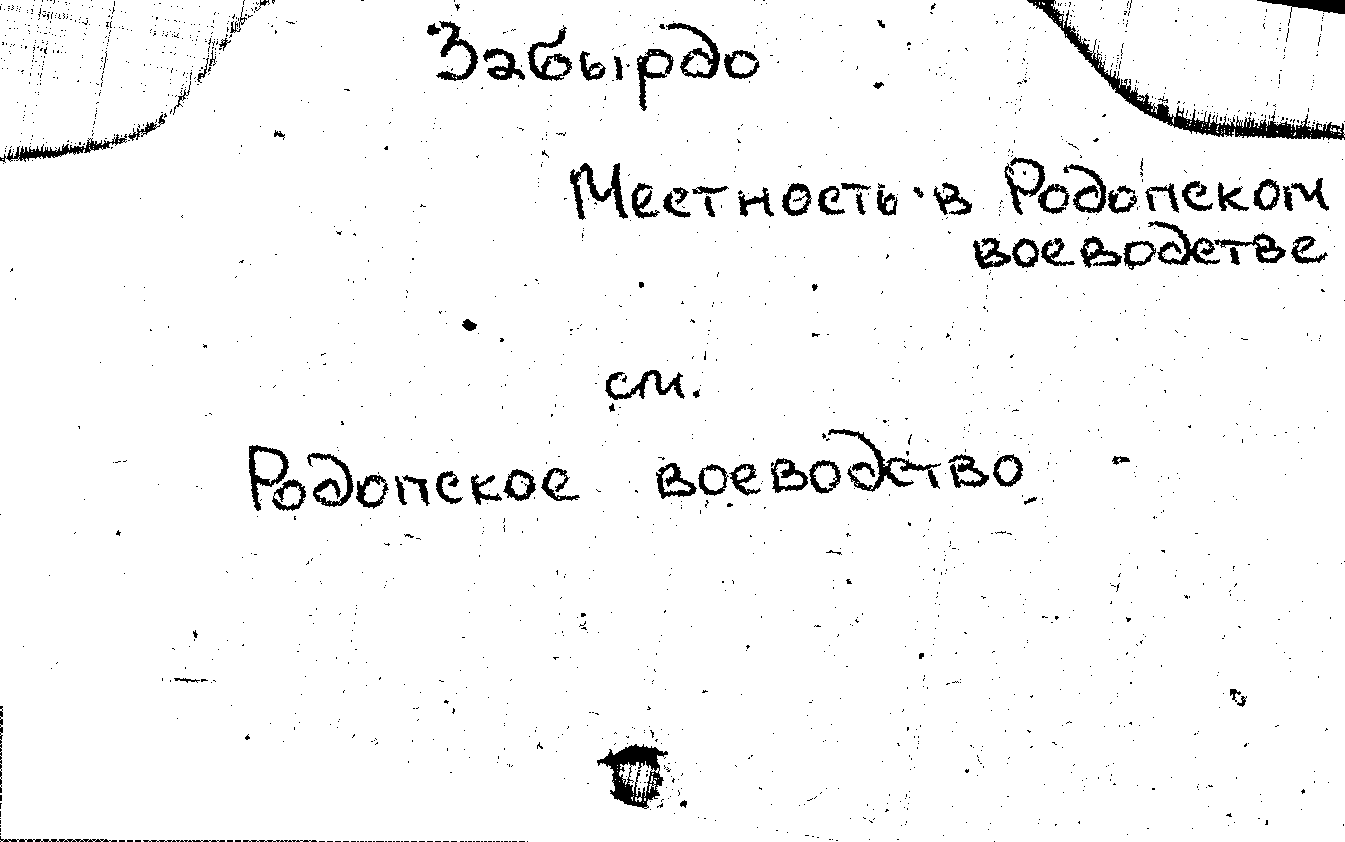 Забырдо
Местность в Родопском
воеводстве
см.
Родопское воеводство